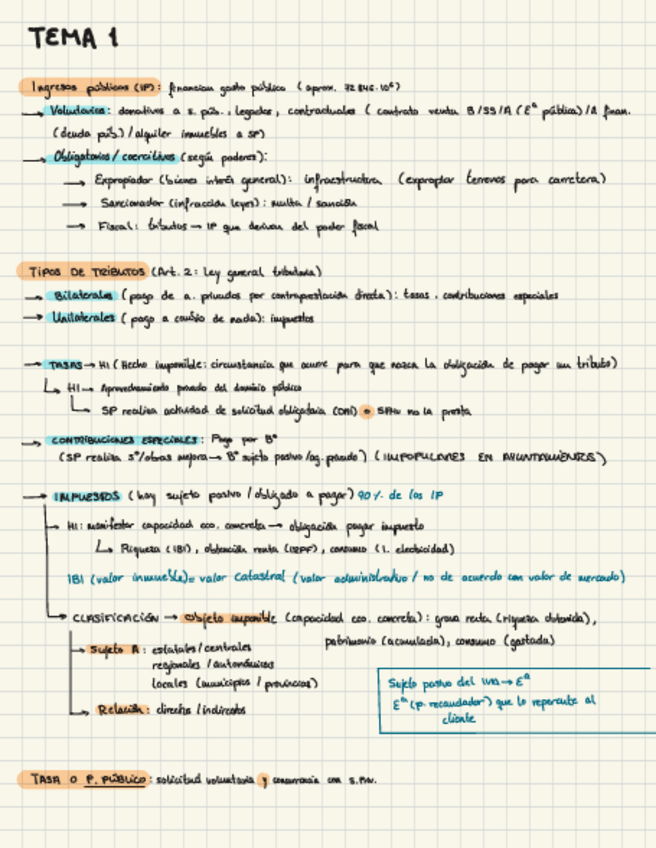 TEMA 1
Ingresos públicos (IP): financian gasto público (aprox. 72 846.10⁶)
→ Voluntarios: donativos a s. púb., legados, contractuales (contrato venta B/SS/A (Eª pública)/A finan.
(deuda púb.)/alquiler inmuebles a SP)
→ Obligatorios/coercitivos (según poderes):
→ Expropiador (bienes interés general): infraestructura (expropiar terrenos para carretera)
→ Sancionador (infracción leyes): multa/sanción
→ Fiscal: tributos → IP que derivan del poder fiscal
TIPOS DE TRIBUTOS (Art. 2: Ley general tributaria)
→ Bilaterales (pago de a. privados por contraprestación directa): tasas, contribuciones especiales
→ Unilaterales (pago a cambio de nada): impuestos
→ TASAS → HI (Hecho imponible: circunstancia que ocurre para que nazca la obligación de pagar un tributo)
↳ HI → Aprovechamiento privado del dominio público
↳ SP realiza actividad de solicitud obligatoria (DNI) o SPriv no la presta
→ CONTRIBUCIONES ESPECIALES: Pago por Bº
(SP realiza sº/obras mejora → Bº sujeto pasivo/ag. privado) (IMPOPULARES EN AYUNTAMIENTOS)
→ IMPUESTOS (hay sujeto pasivo/obligado a pagar) 90% de los IP
→ HI: manifestar capacidad eco. concreta → obligación pagar impuesto
↳ Riqueza (IBI), obtención renta (IRPF), consumo (I. electricidad)
IBI (valor inmueble) = valor catastral (valor administrativo/no de acuerdo con valor de mercado)
→ CLASIFICACIÓN → Objeto imponible (capacidad eco. concreta): grava renta (riqueza obtenida),
patrimonio (acumulada), consumo (gastada)
→ Sujeto A: estatales/centrales
regionales/autonómicos
locales (municipios/provincias)
→ Relación: directos/indirectos
Sujeto pasivo del IVA → Eª
Eª (p. recaudador) que lo repercute al
cliente
TASA O P. PÚBLICO: solicitud voluntaria y concurrencia con S.Priv.